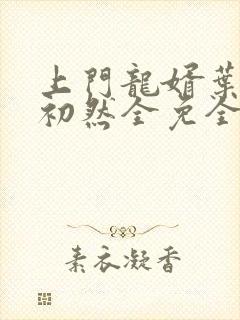 上門龍婿葉
初然全免全
素衣凝香